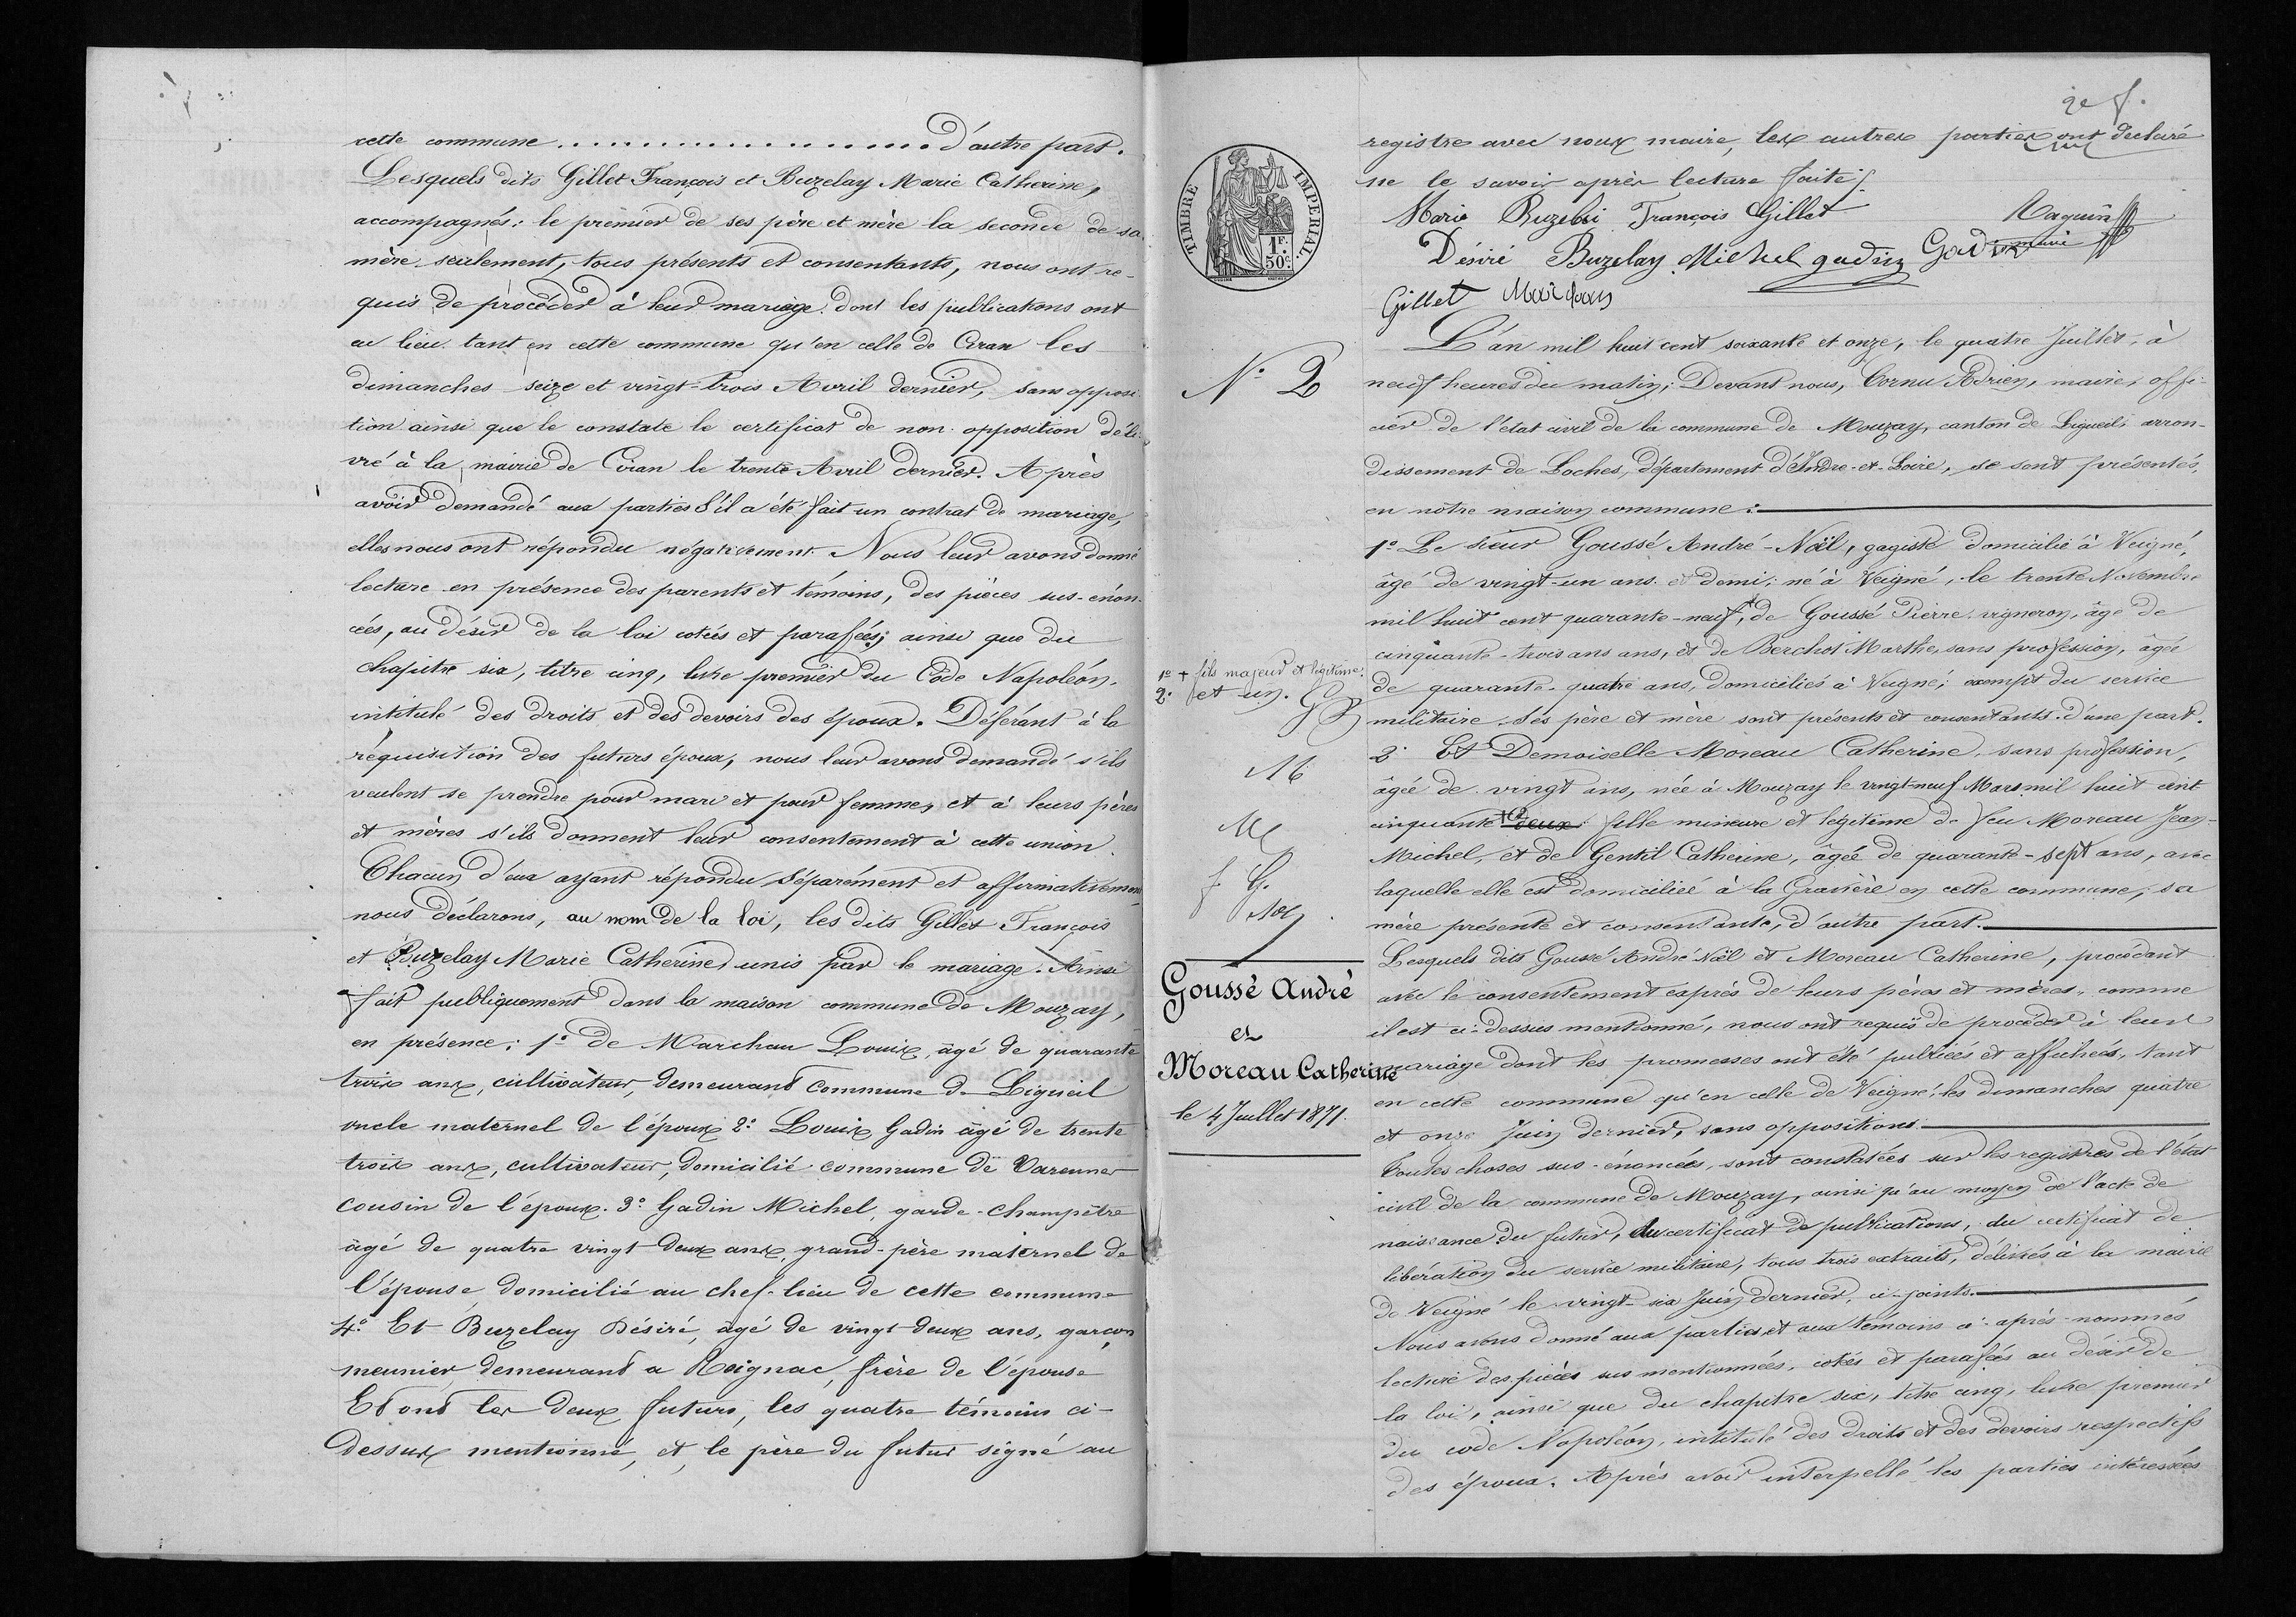 cette commune .................... d'autre part.
Lesquels dits Gillet François et Buzelay Marie Catherine,
accompagnés : le premier de ses père et mère la seconde de sa
mère seulement, tous présents et consentants, nous ont re-
quis de procéder à leur mariage dont les publications ont
eu lieu tant en cette commune qu'en celle de Ciran les
dimanches seize et vingt-trois Avril dernier, sans opposi-
tion ainsi que le constate le certificat de non opposition déli-
vré à la mairie de Ciran le trente Avril dernier. Après
avoir demandé aux parties s'il a été fait un contrat de mariage,
elles nous ont répondu négativement. Nous leur avons donné
lecture en présence des parents et témoins, des pièces sus-énon-
cées, au désir de la loi cotées et parafées; ainsi que du
chapitre six, titre cinq, livre premier du Code Napoléon,
intitulé des droits et des devoirs des époux. Déférant à la
réquisition des futurs époux, nous leur avons demandé s'ils
veulent se prendre pour mari et pour femme, et à leurs pères
et mères s'ils donnent leur consentement à cette union.
Chacun d'eux ayant répondu séparément et affirmativement
nous déclarons, au nom de la loi, les dits Gillet François
et Buzelay Marie Catherine, unis par le mariage. Ainsi
fait publiquement dans la maison commune de Mouzay,
en présence : 1º de Marchau Louis, âgé de quarante
trois ans, cultivateur, demeurant commune de Ligueil
oncle maternel de l'époux 2º Louis Gadin âgé de trente
trois ans, cultivateur, domicilié commune de Varennes
cousin de l'époux. 3º Gadin Michel, garde-champêtre
âgé de quatre vingt deux ans, grand-père maternel de
l'épouse domicilié au chef-lieu de cette commune
4º Et Buzelay Désiré, âgé de vingt deux ans, garçon
meunier demeurant a Reignac, frère de l'épouse
Et ont les deux futurs, les quatre témoins ci-
dessus mentionné, et le père du futur signé au
2e f.
registre avec nous maire, les autres parties ont déclaré
ne le savoir après lecture faite.
Marie Buzelai François Gillet Maquin
Désiré Buzelay Michel gadin Gadin maire
Gillet
TIMBRE IMPERIAL.
1F. 50c.
Nº 2
L'an mil huit cent soixante et onze, le quatre Juillet, à
neuf heures du matin; Devant nous, Cornu Adrien, maire, offi-
cier de l'état civil de la commune de Mouzay, canton de Ligueil, arron-
dissement de Loches, département d'Indre-et-Loire, se sont présentés,
en notre maison commune :
1º Le sieur Goussé André-Noël, gagiste domicilié à Veigné,
âgé de vingt-un ans et demi, né à Veigné, le trente Novembre
mil huit cent quarante-neuf, + de Goussé Pierre vigneron, âgé de
cinquante-trois ans ans, et de Berchot Marthe, sans profession, âgée
de quarante-quatre ans, domiciliés à Veigné; exempt du service
militaire. Ses père et mère sont présents et consentants. d'une part.
1º + fils majeur et légitime.
2º et un.
2º Et Demoiselle Moreau Catherine, sans profession,
âgée de vingt ans, née à Mouzay le vingt-neuf Mars mil huit cent
cinquante deux fille mineure et légitime de feu Moreau Jean-
Michel, et de Gentil Catherine, âgée de quarante-sept ans, avec
laquelle elle est domiciliée à la Gravière en cette commune; sa
mère présente et consentante, d'autre part.
Goussé André
et
Moreau Catherine
le 4 Juillet 1871.
Lesquels dits Goussé André Noël et Moreau Catherine, procédant
avec le consentement exprès de leurs pères et mères, comme
il est ci-dessus mentionné, nous ont requis de procéder à leur
mariage dont les promesses ont été publiées et affichées, tant
en cette commune qu'en celle de Veigné, les dimanches quatre
et onze Juin dernier, sans oppositions.
Toutes choses sus-énoncées, sont constatées sur les registres de l'état
civil de la commune de Mouzay, ainsi qu'au moyen de l'acte de
naissance du futur, du certificat de publications, du certificat de
libération du service militaire, tous trois extraits, délivrés à la mairie
de Veigné le vingt-six Juin dernier, ci-joints.
Nous avons donné aux parties et aux témoins ci-après-nommés
lecture des pièces sus mentionnées, cotés et parafées au désir de
la loi, ainsi que du chapitre six, titre cinq, livre premier
du code Napoléon, intitulé des droits et des devoirs respectifs
des époux. Après avoir interpellé les parties intéressées